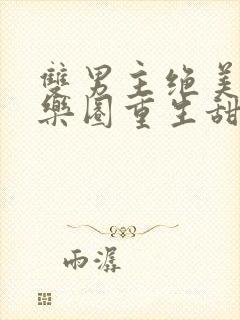 雙男主绝美
樂圈重生甜
雨潺